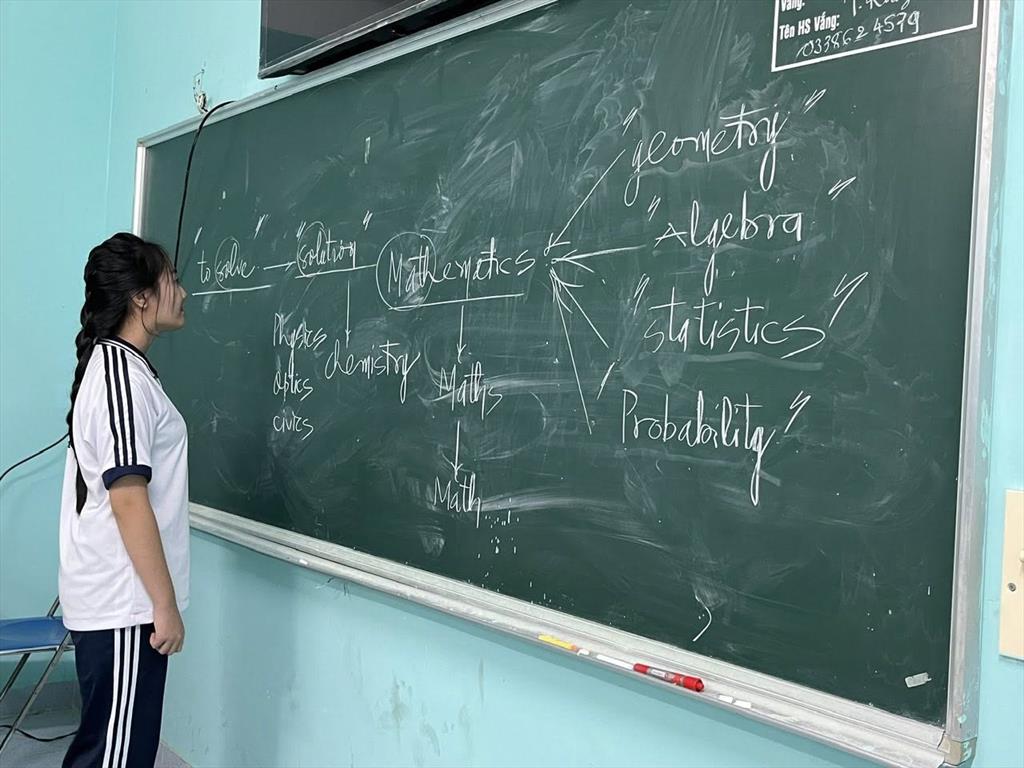 Vắng:
Tên HS Vắng:
0338624579
"geometry"
"to solve" → "solution"
Mathematics
"Algebra"
"statistics"
Physics
chemistry
Maths
optics
civics
"Probability"
Math